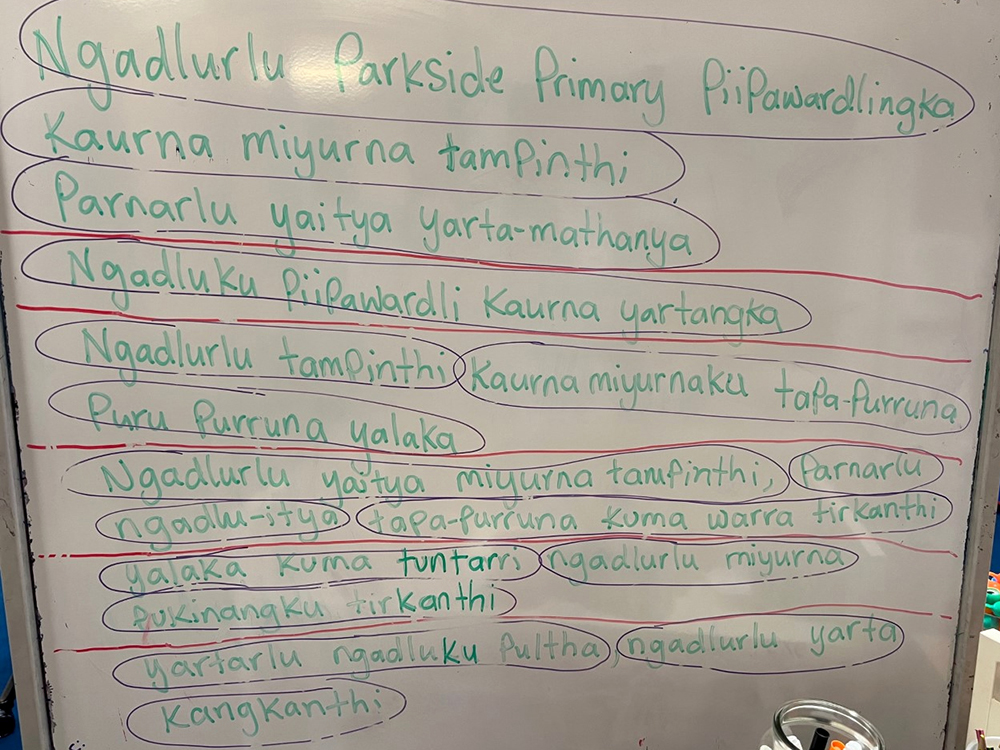 Ngadlurlu Parkside Primary Piipawardlingka
Kaurna miyurna tampinthi
Parnarlu yaitya yarta-mathanya
Ngadluku Piipawardli Kaurna yartangka
Ngadlurlu tampinthi Kaurna miyurnaku tapa-purruna
Puru Purruna yalaka
Ngadlurlu yaitya miyurna tampinthi, Parnarlu
ngadlu-itya tapa-purruna kuma warra tirkanthi
yalaka kuma tuntarri ngadlurlu miyurna
pukinangku tirkanthi
yartarlu ngadluku Pultha, ngadlurlu yarta
Kangkanthi